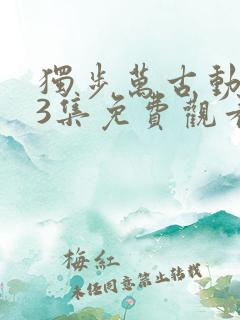 獨步萬古動
3集免費觀看
梅紅
未任同意禁止转载